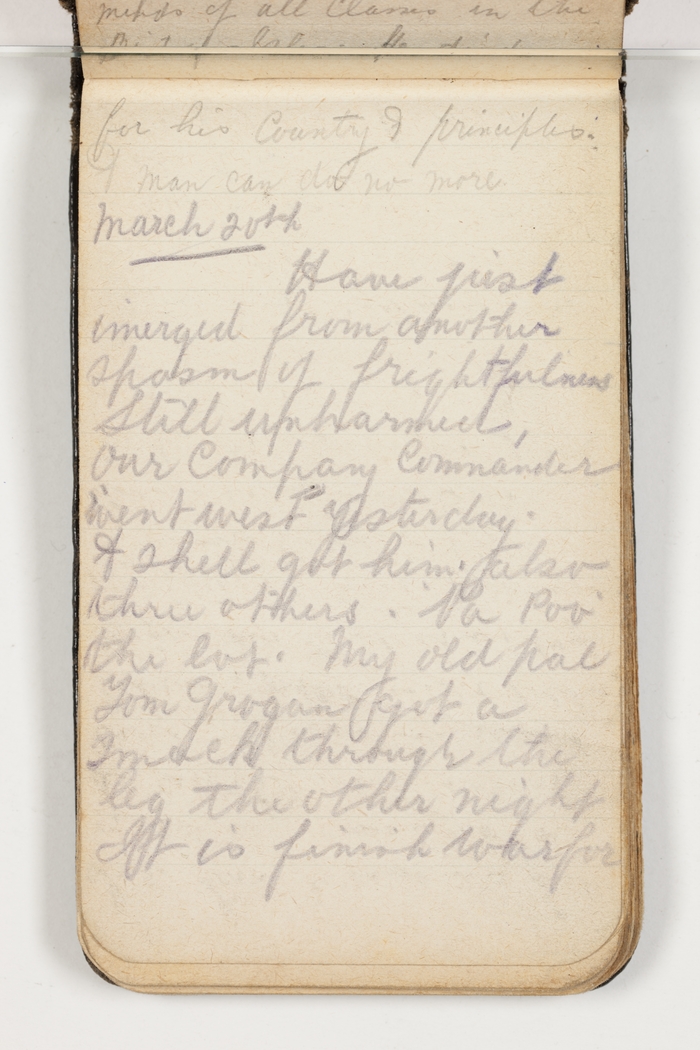 minds of all Classes in the
for his Country & principles.
A man can do no more.
March 20th
Have just
imerged from another
spasm of frightfulness
Still unharmed,
Our Company Commander
went west yesterday.
A shell got him. also
three others. Na Poo
the lot. My old pal
Tom Grogan got a
smack through the
leg the other night
It is finish war for